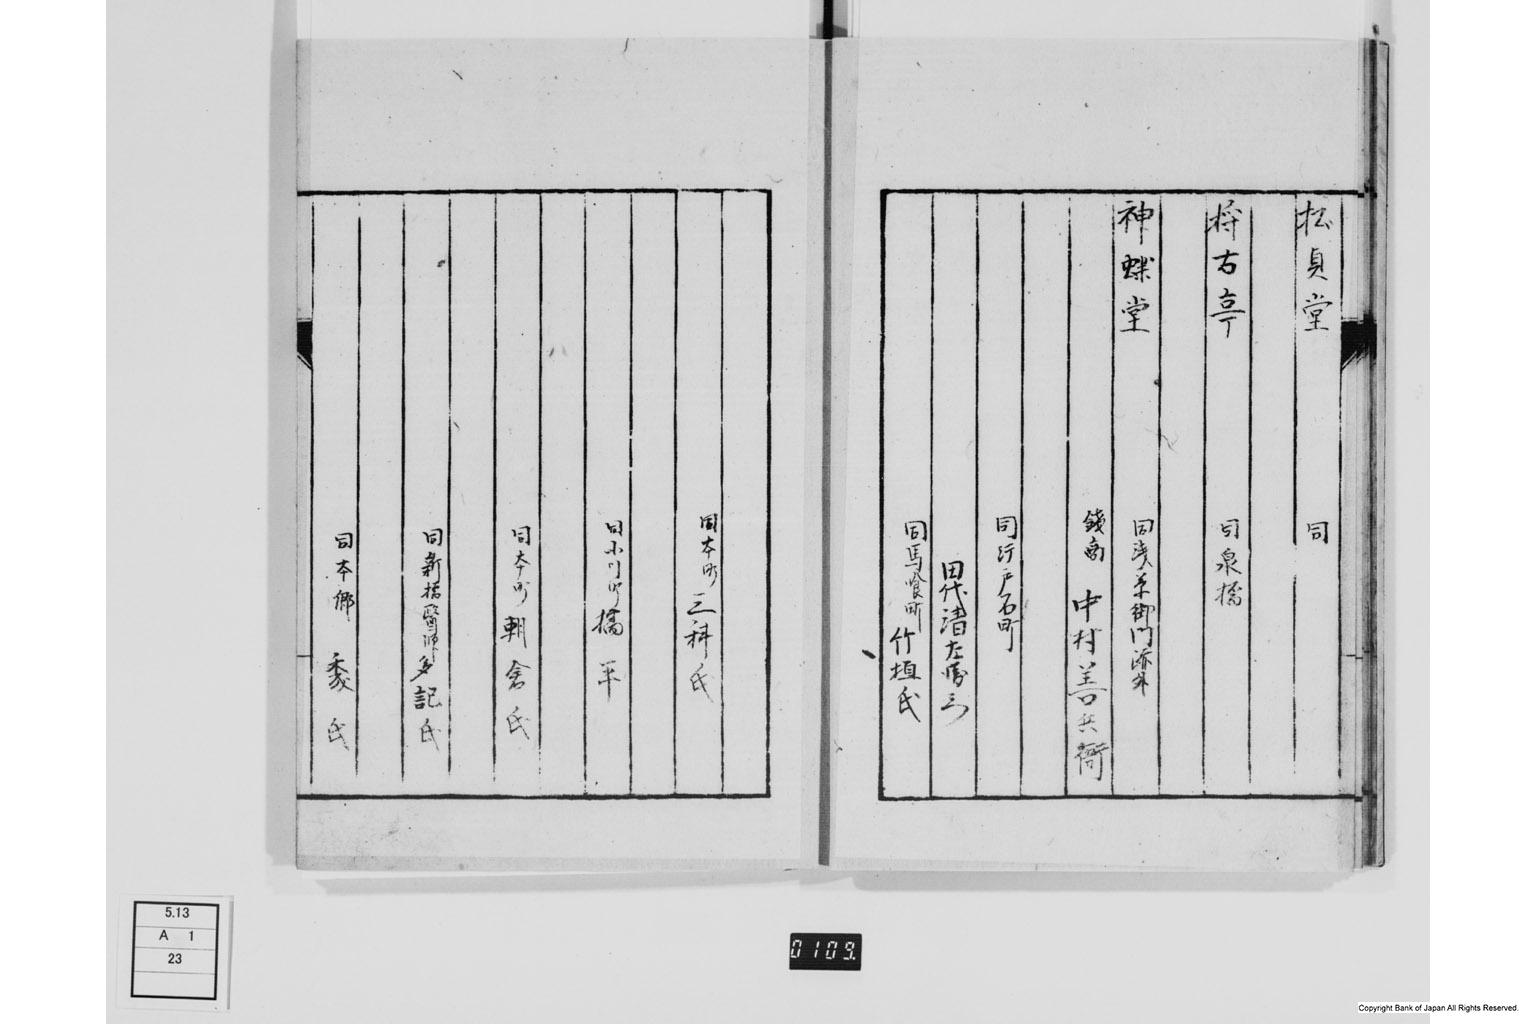 松貞堂
同
好古亭
同泉橋
神蝶堂
同浅草御門溌外
銭商 中村善兵衛
同行戸石町
田代清左衛門
同馬喰町 竹垣氏
同本町 三科氏
同小川町 橘平
同本町 朝倉氏
同新橋醫師 多記氏
同本郷 氏
5.13
A 1
23
0109.
Copyright Bank of Japan All Rights Reserved.